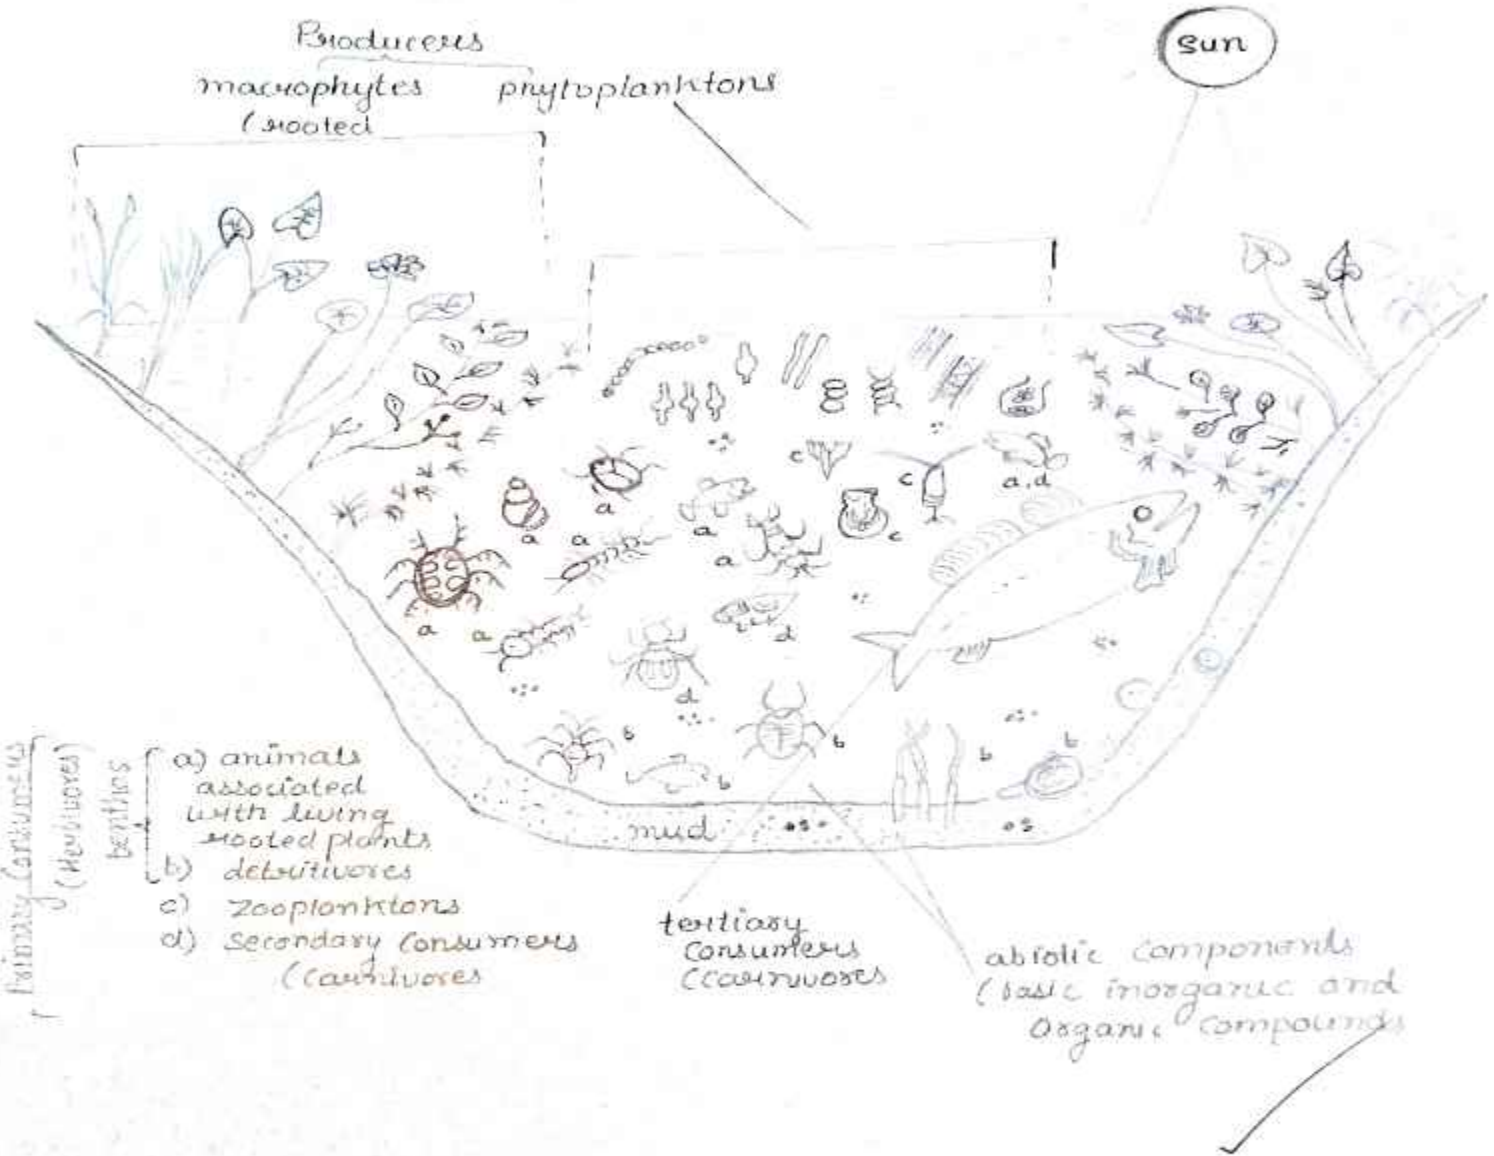 Producers
Sun
macrophytes phytoplanktons
(rooted
c
c
a,d
a
a
a
a
a
c
a
a
d
d
b
b
b
b
b
mud
Primary Consumers
(Herbivores)
benthos
a) animals
associated
with living
rooted plants
b) detritivores
c) zooplanktons
d) Secondary Consumers
(Carnivores
tertiary
Consumers
(Carnivores
abiotic components
(basic inorganic and
organic compounds